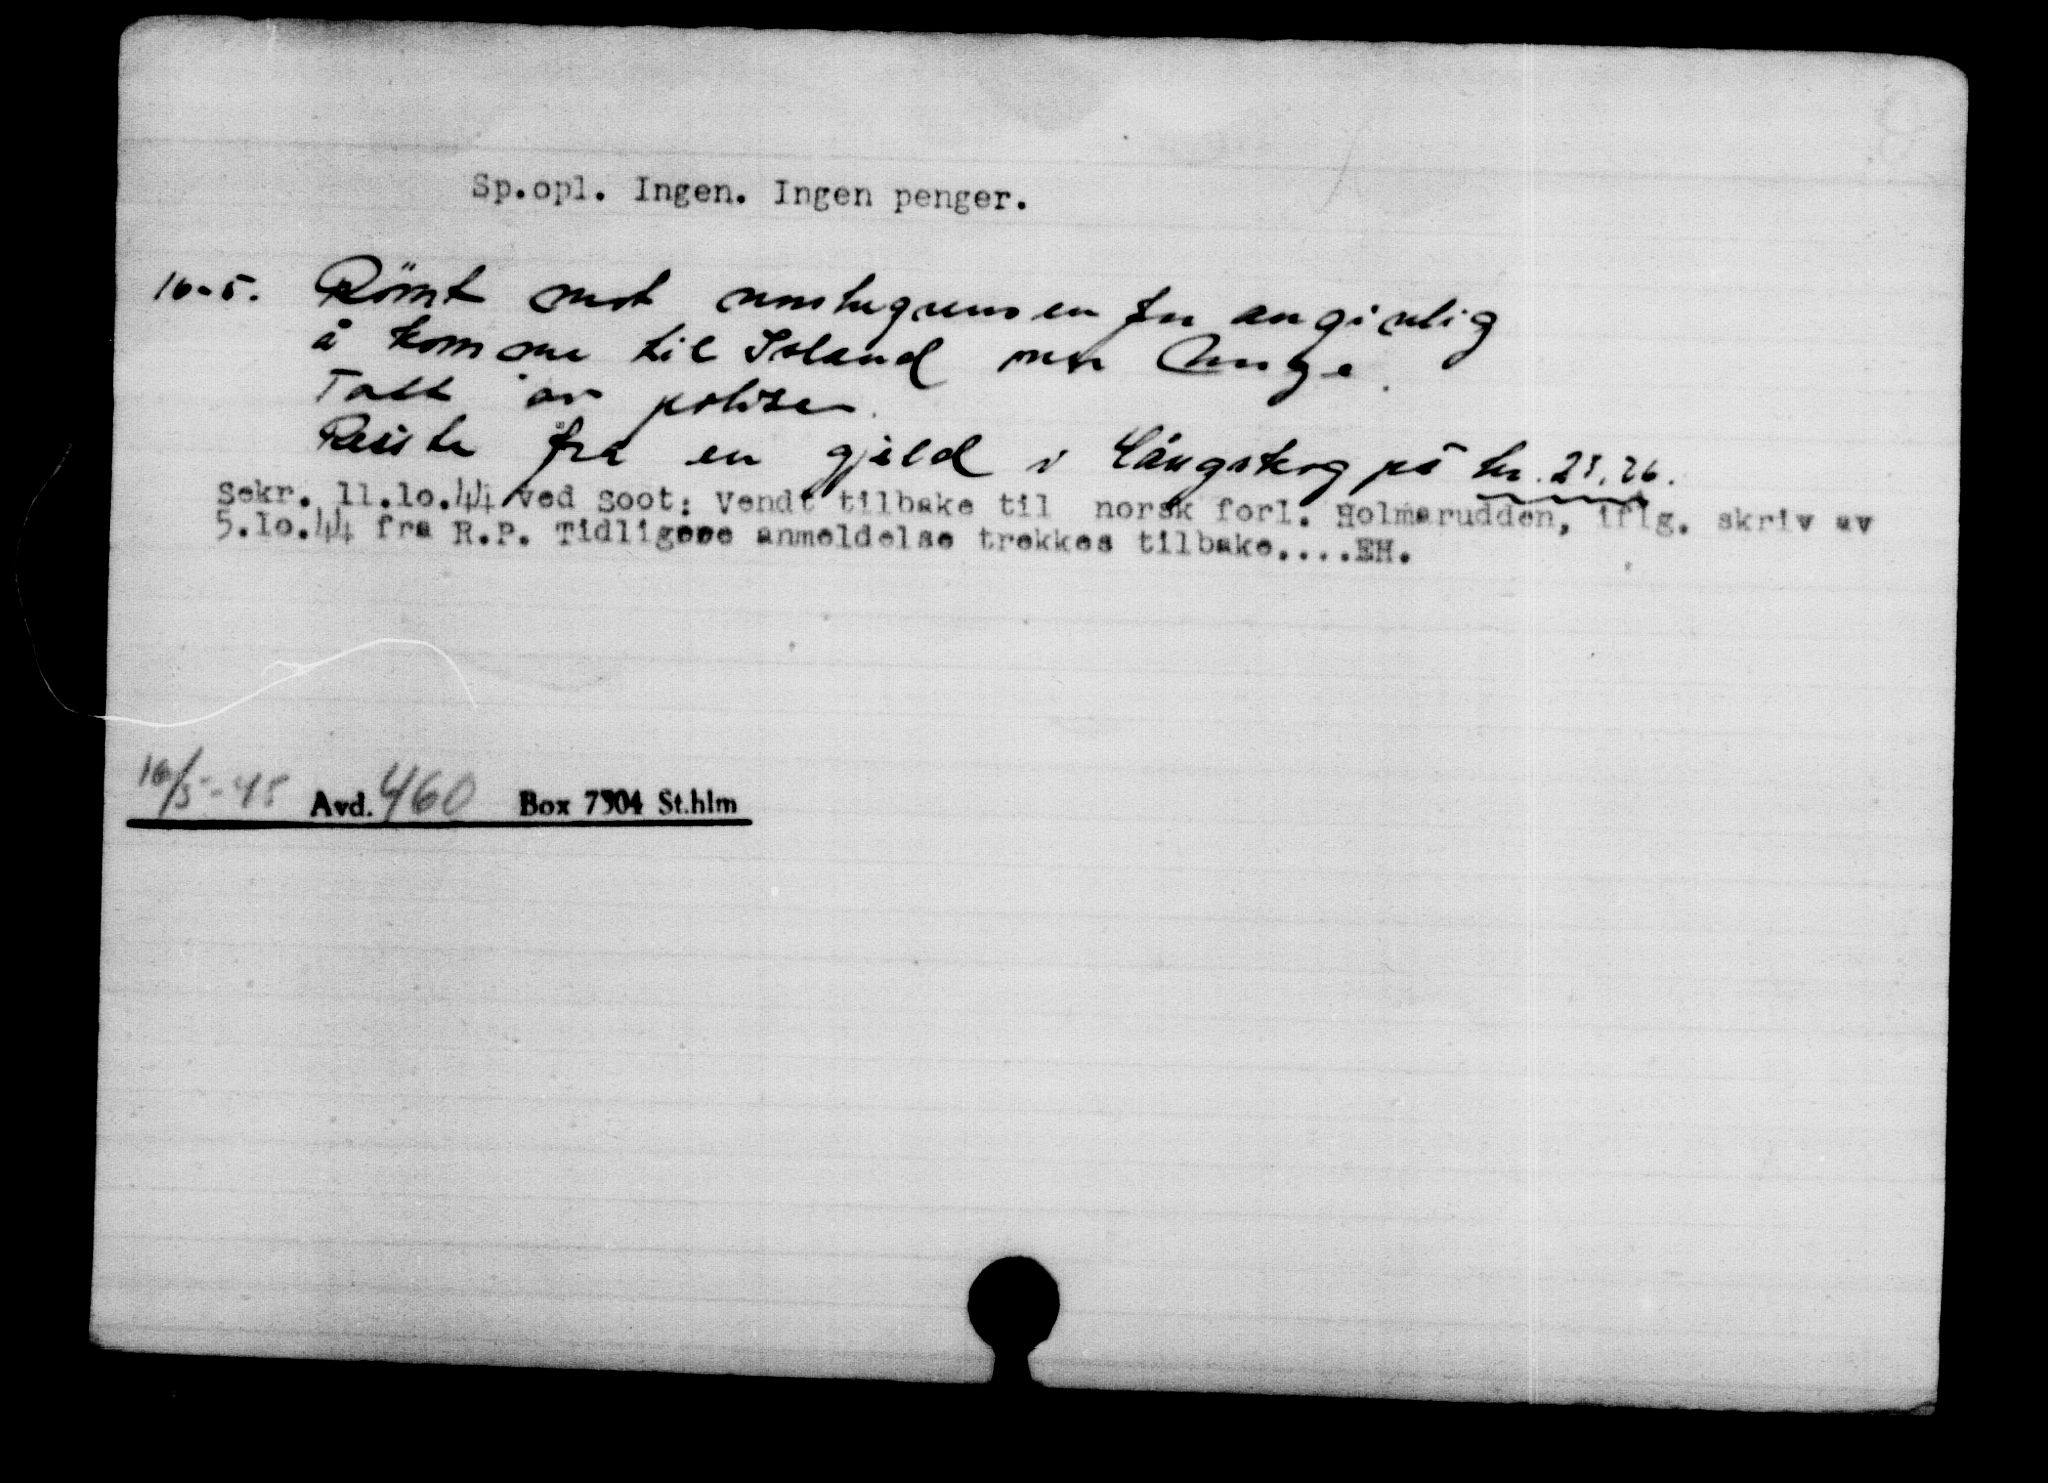 Sp.opl. Ingen. Ingen penger.
16-5. Römt mot norskegrensen for angivelig
å komme til Island over Norge.
Tatt av politiet.
Reiste fra en gjeld i Långskog på kr. 25,26.
Sekr. 11.10.44 ved Soot: Vendt tilbake til norsk forl. Holmarudden, iflg. skriv av
5.10.44 fra R.P. Tidligere anmeldelse trekkes tilbake....EH.
16/5-45 Avd. 460 Box 7304 St.hlm